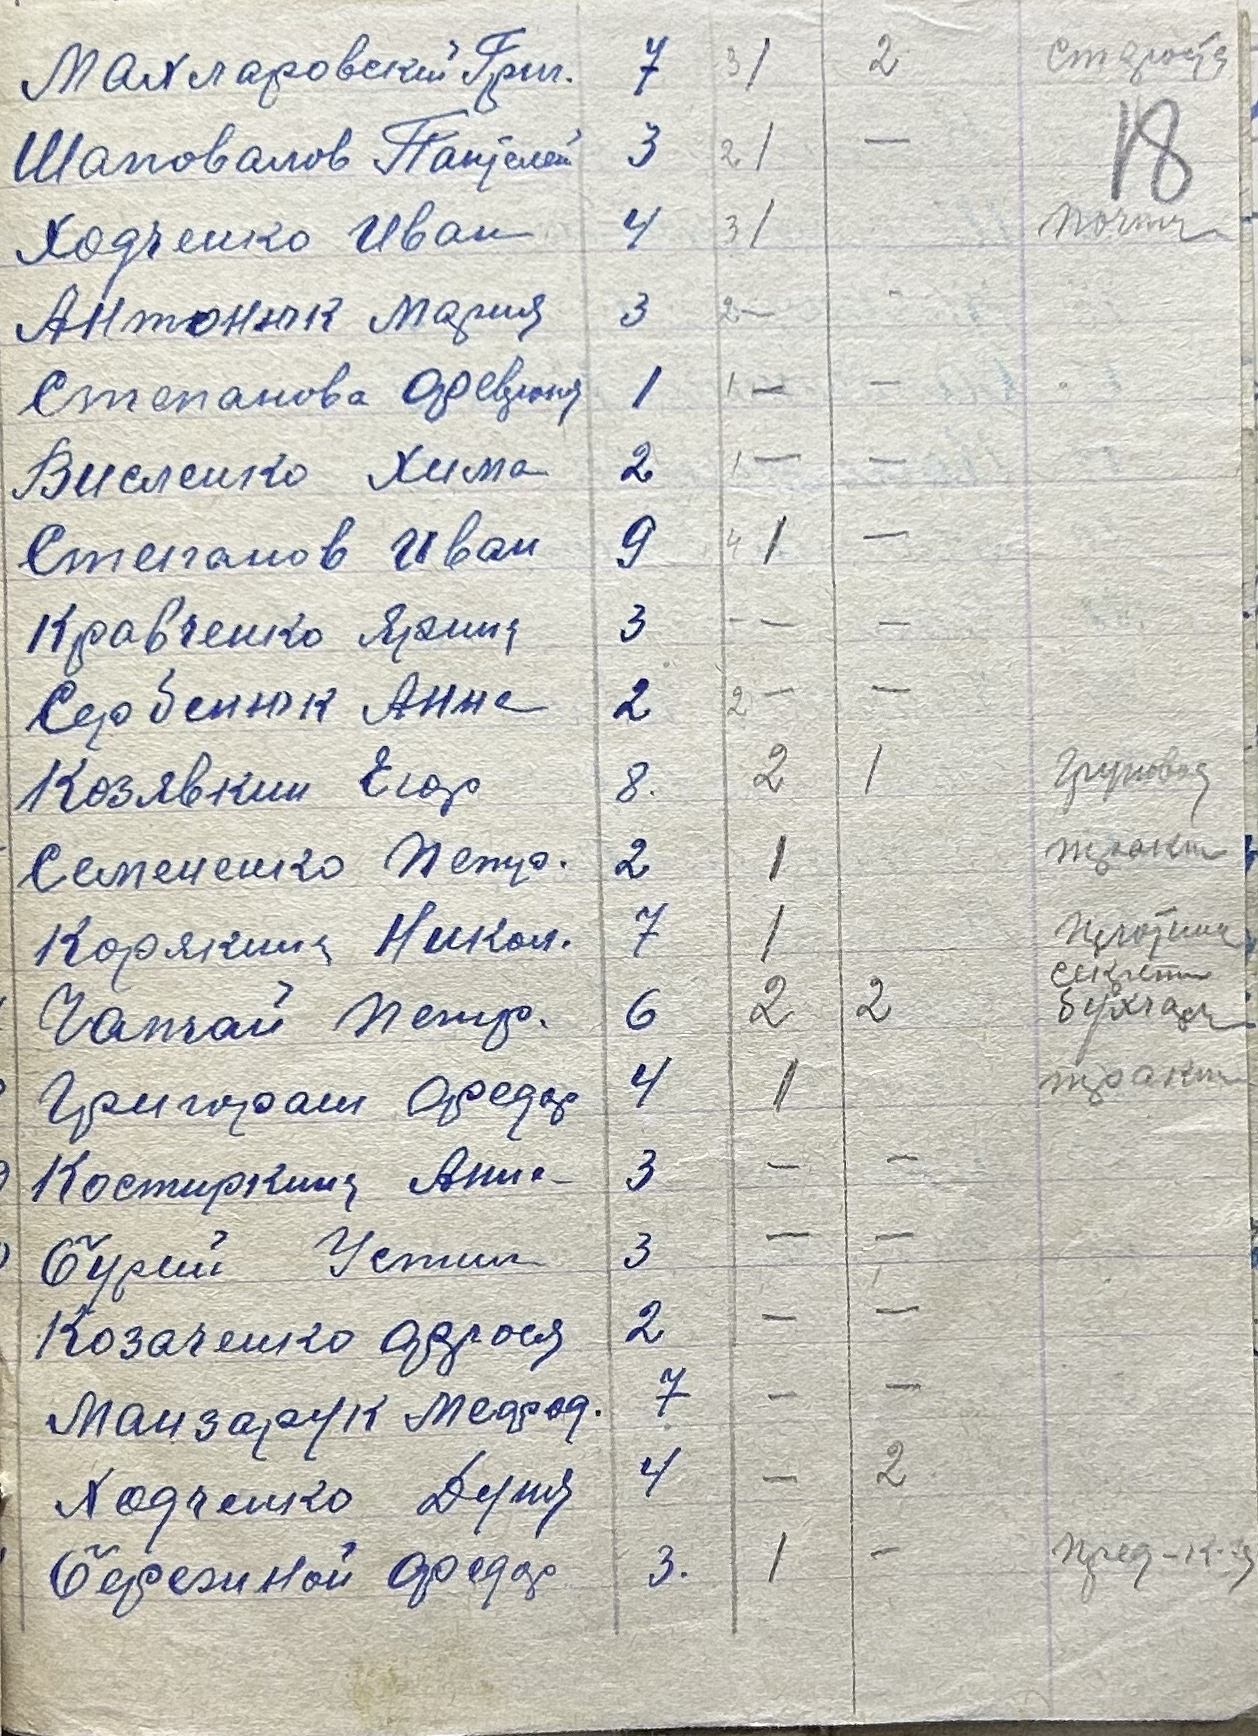 Махларовский Григ. 7 3/1 2 староста
18
Шаповалов Пантелей 3 2/1 —
Ходченко Иван 4 3/1 почта
Антонюк Мария 3 2— -
Степанова Февронья 1 1— —
Висленко Хима 2 1— —
Степанов Иван 9 4 1 —
Кравченко Ярина 3 -— —
Сербенюк Анна 2 2— —
Козявкин Егор 8. 2 1 груповод
Семененко Петр. 2 1 тракт
Корякина Никол. 7 1 плотник
секрет
Чапчай Петр. 6 2 2 бухгалт
Григораш Федор 4 1 тракт
Костиркина Анна 3 — —
Бурий Устин 3 — —
Козаченко Фрося 2 — —
Манзарук Мефод. 7 — —
Ходченко Дуня 4 — 2
Бережной Федор 3. 1 — Пред-к-за